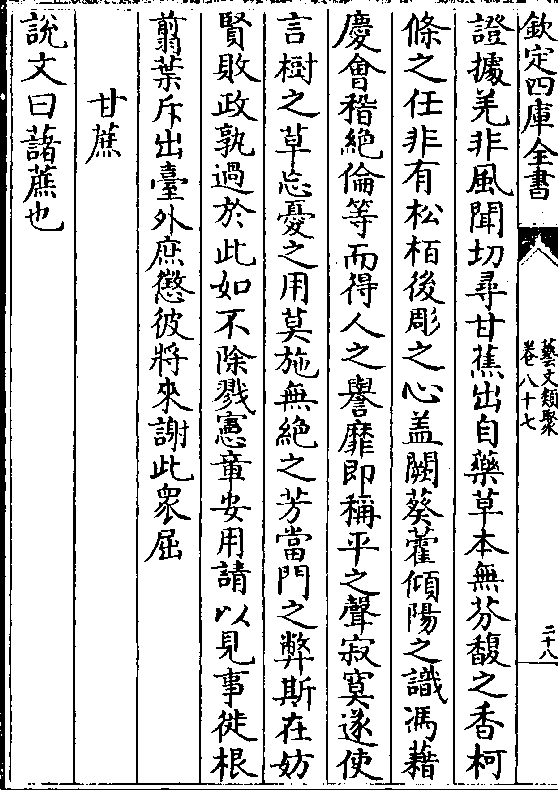 欽定四庫全書
藝文類聚
卷八十七
二十八
證據羌非風聞切尋甘蕉出自藥草本無芬馥之香柯
條之任非有松栢後彫之心盖闕葵藿傾陽之識馮藉
慶會稽絶倫等而得人之譽靡即稱平之聲寂寞遂使
言樹之草忘憂之用莫施無絶之芳當門之弊斯在妨
賢敗政孰過於此如不除戮憲章安用請以見事徙根
翦葉斥出臺外庶懲彼將來謝此衆屈
甘蔗
說文曰藷蔗也